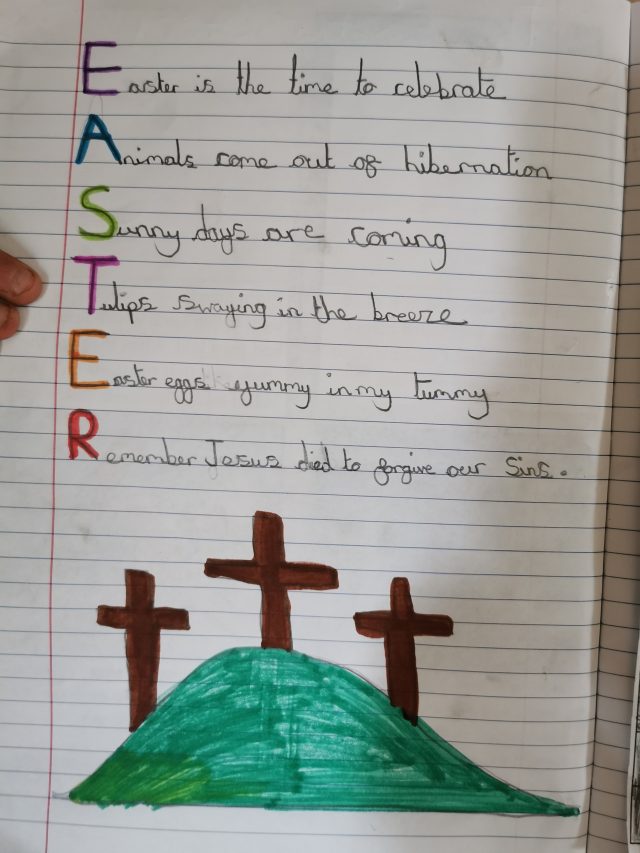 Easter is the time to celebrate
Animals come out of hibernation
Sunny days are coming
Tulips swaying in the breeze
Easter eggs yummy in my tummy
Remember Jesus died to forgive our sins.